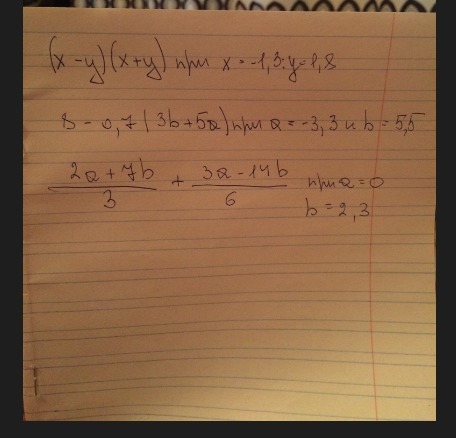 (x-y)(x+y) при x=-1,3; y=1,8
8-0,7(3b+5a) при a=-3,3 и b=5,5
(2a+7b)/3 + (3a-14b)/6 при a=0
b=2,3